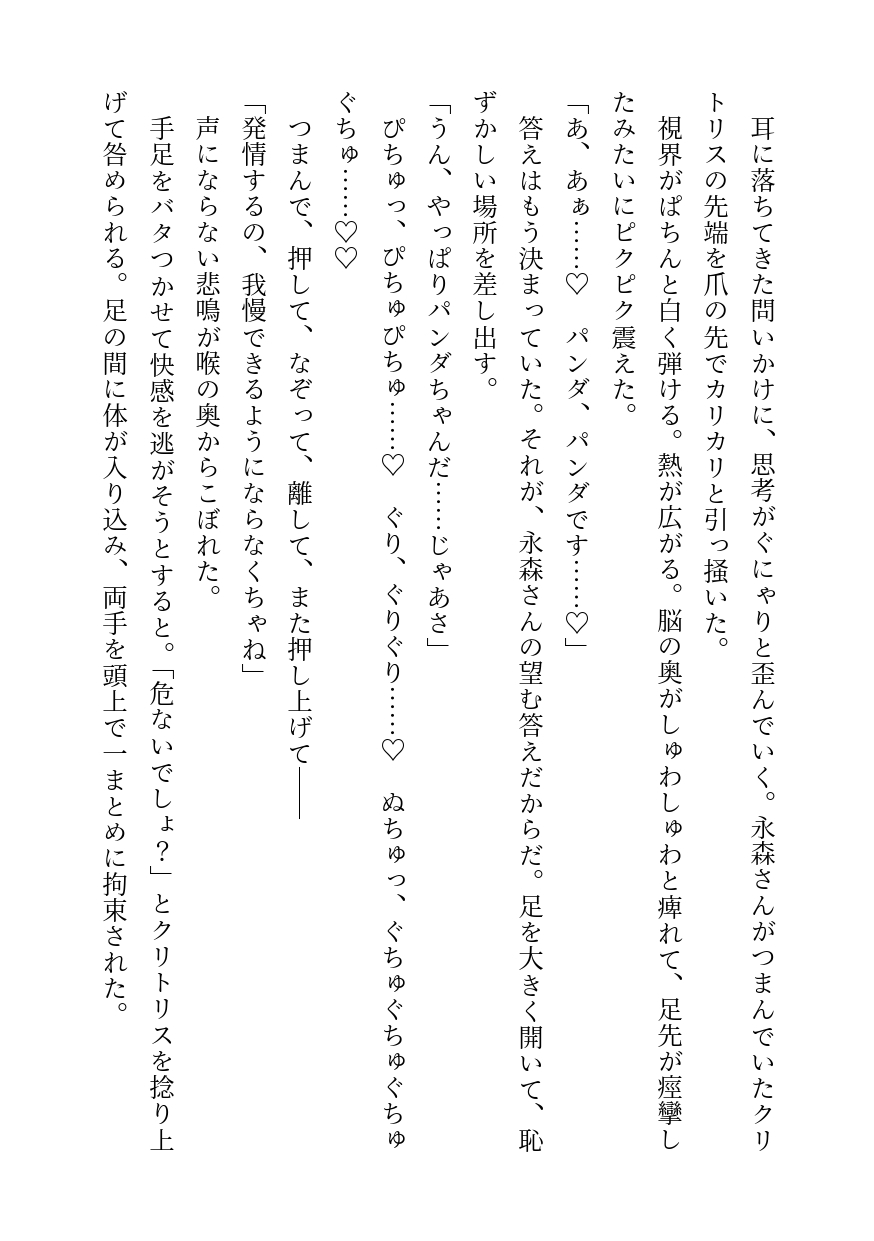 耳に落ちてきた問いかけに、思考がぐにゃりと歪んでいく。永森さんがつまんでいたクリ
トリスの先端を爪の先でカリカリと引っ掻いた。
　視界がぱちんと白く弾ける。熱が広がる。脳の奥がしゅわしゅわと痺れて、足先が痙攣し
たみたいにピクピク震えた。
「あ、あぁ……♡　パンダ、パンダです……♡」
　答えはもう決まっていた。それが、永森さんの望む答えだからだ。足を大きく開いて、恥
ずかしい場所を差し出す。
「うん、やっぱりパンダちゃんだ……じゃあさ」
　ぴちゅっ、ぴちゅぴちゅ……♡　ぐり、ぐりぐり……♡　ぬちゅっ、ぐちゅぐちゅぐちゅ
ぐちゅ……♡♡
　つまんで、押して、なぞって、離して、また押し上げて――
「発情するの、我慢できるようにならなくちゃね」
　声にならない悲鳴が喉の奥からこぼれた。
　手足をバタつかせて快感を逃がそうとすると。「危ないでしょ？」とクリトリスを捻り上
げて咎められる。足の間に体が入り込み、両手を頭上で一まとめに拘束された。